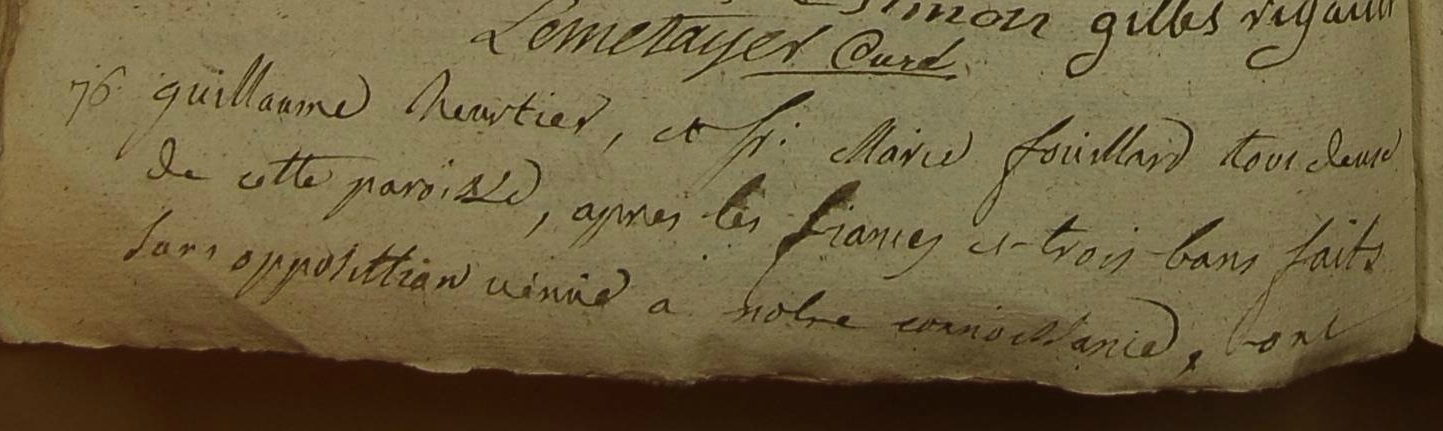 Simon gilles rigault
Lemetayer Curé
76 guillaume heurtier, et fr: Marie fouillard tous deux
de cette paroisse, apres les fiances et trois bans faits
sans opposittion venüe a notre connoissance, ont